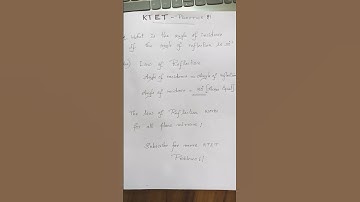 KTET - Previous
what is the angle of incidence
if the angle of reflection is
Law of Reflection
Angle of incidence = Angle of reflection
Angle of incidence =
The law of Reflection
for all plane mirrors
Subscribe for more KTET